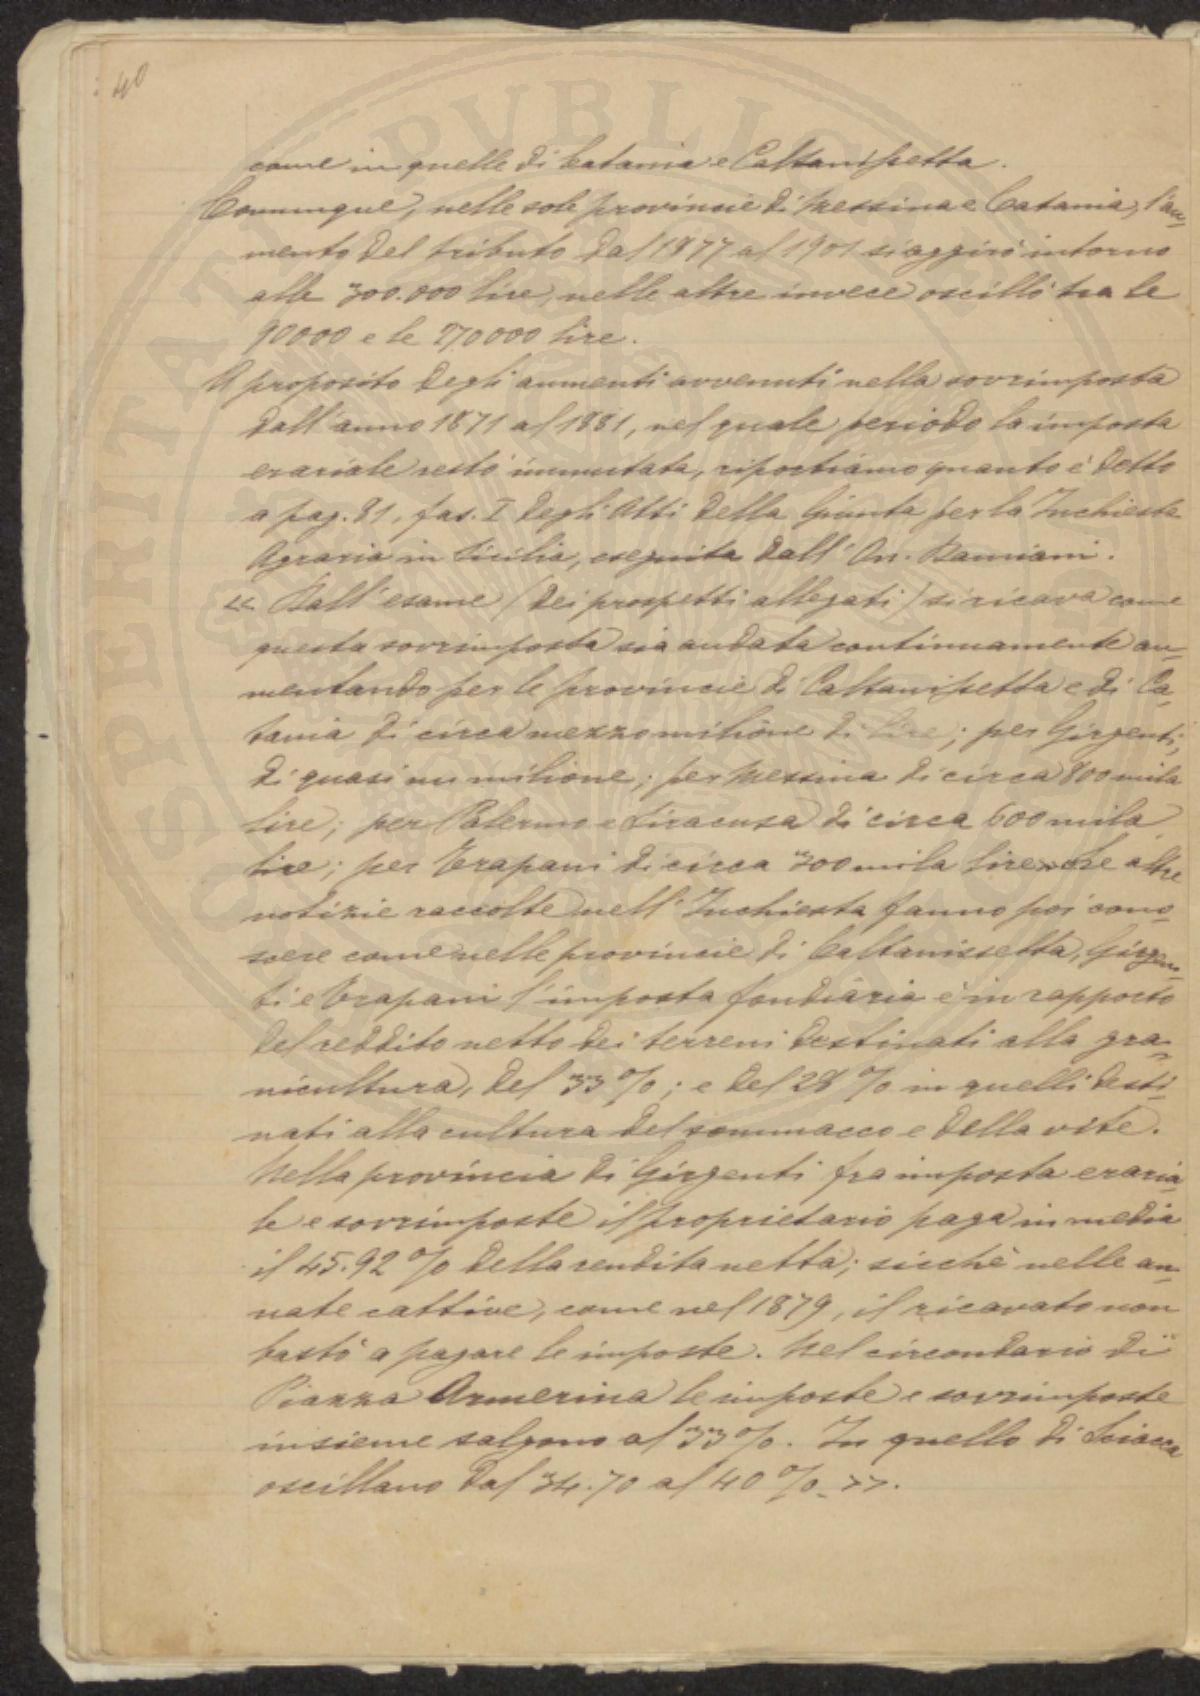 40
come in quelle di Catania e Caltanissetta.
Comunque, nelle sole provincie di Messina e Catania, l'au-
mento del tributo dal 1877 al 1901 si aggirò intorno
alle 300.000 lire, nelle altre invece oscillò tra le
90000 e le 270000 lire.
A proposito degli aumenti avvenuti nella sovrimposta
dall'anno 1871 al 1881, nel quale periodo la imposta
erariale restò immutata, riportiamo quanto è detto
a pag. 81, fas. I degli Atti della Giunta per la Inchiesta
Agraria in Sicilia, eseguita dall'On. Damiani.
« Dall'esame (dei prospetti allegati) si ricava come
questa sovrimposta sia andata continuamente au-
mentando per le provincie di Caltanissetta e di Ca-
tania di circa mezzo milione di lire; per Girgenti,
di quasi un milione; per Messina di circa 800 mila
lire; per Palermo e Siracusa di circa 600 mila
lire; per Trapani di circa 300 mila lire». Le altre
notizie raccolte nell'Inchiesta fanno poi cono-
scere come nelle provincie di Caltanissetta, Girgen-
ti e Trapani l'imposta fondiaria è in rapporto
del reddito netto dei terreni destinati alla gra-
nicultura, del 33%; e del 28% in quelli desti-
nati alla cultura del sommacco e della vite.
Nella provincia di Girgenti fra imposta eraria-
le e sovrimposte il proprietario paga in media
il 45.92% della rendita netta; sicchè nelle an-
nate cattive, come nel 1879, il ricavato non
bastò a pagare le imposte. Nel circondario di
Piazza Armerina le imposte e sovrimposte
insieme salgono al 33%. In quello di Sciacca
oscillano dal 34.70 al 40% ».